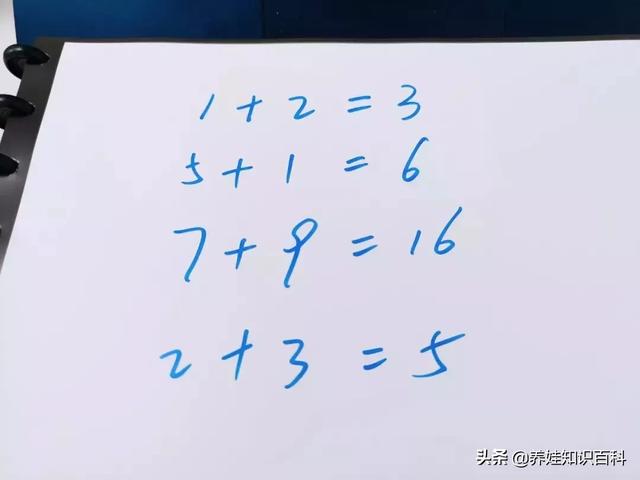 1+2=3
5+1=6
7+9=16
2+3=5
头条 @养娃知识百科